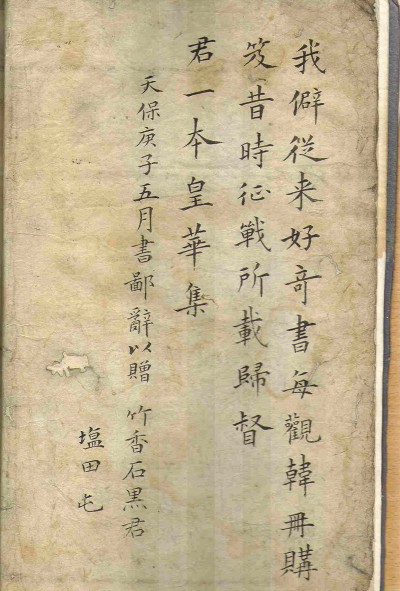 我僻従来好奇書每觀韓冊購
笈昔時征戰所載歸督
君一本皇華集
天保庚子五月書鄙辭以贈 竹香石黒君
塩田屯